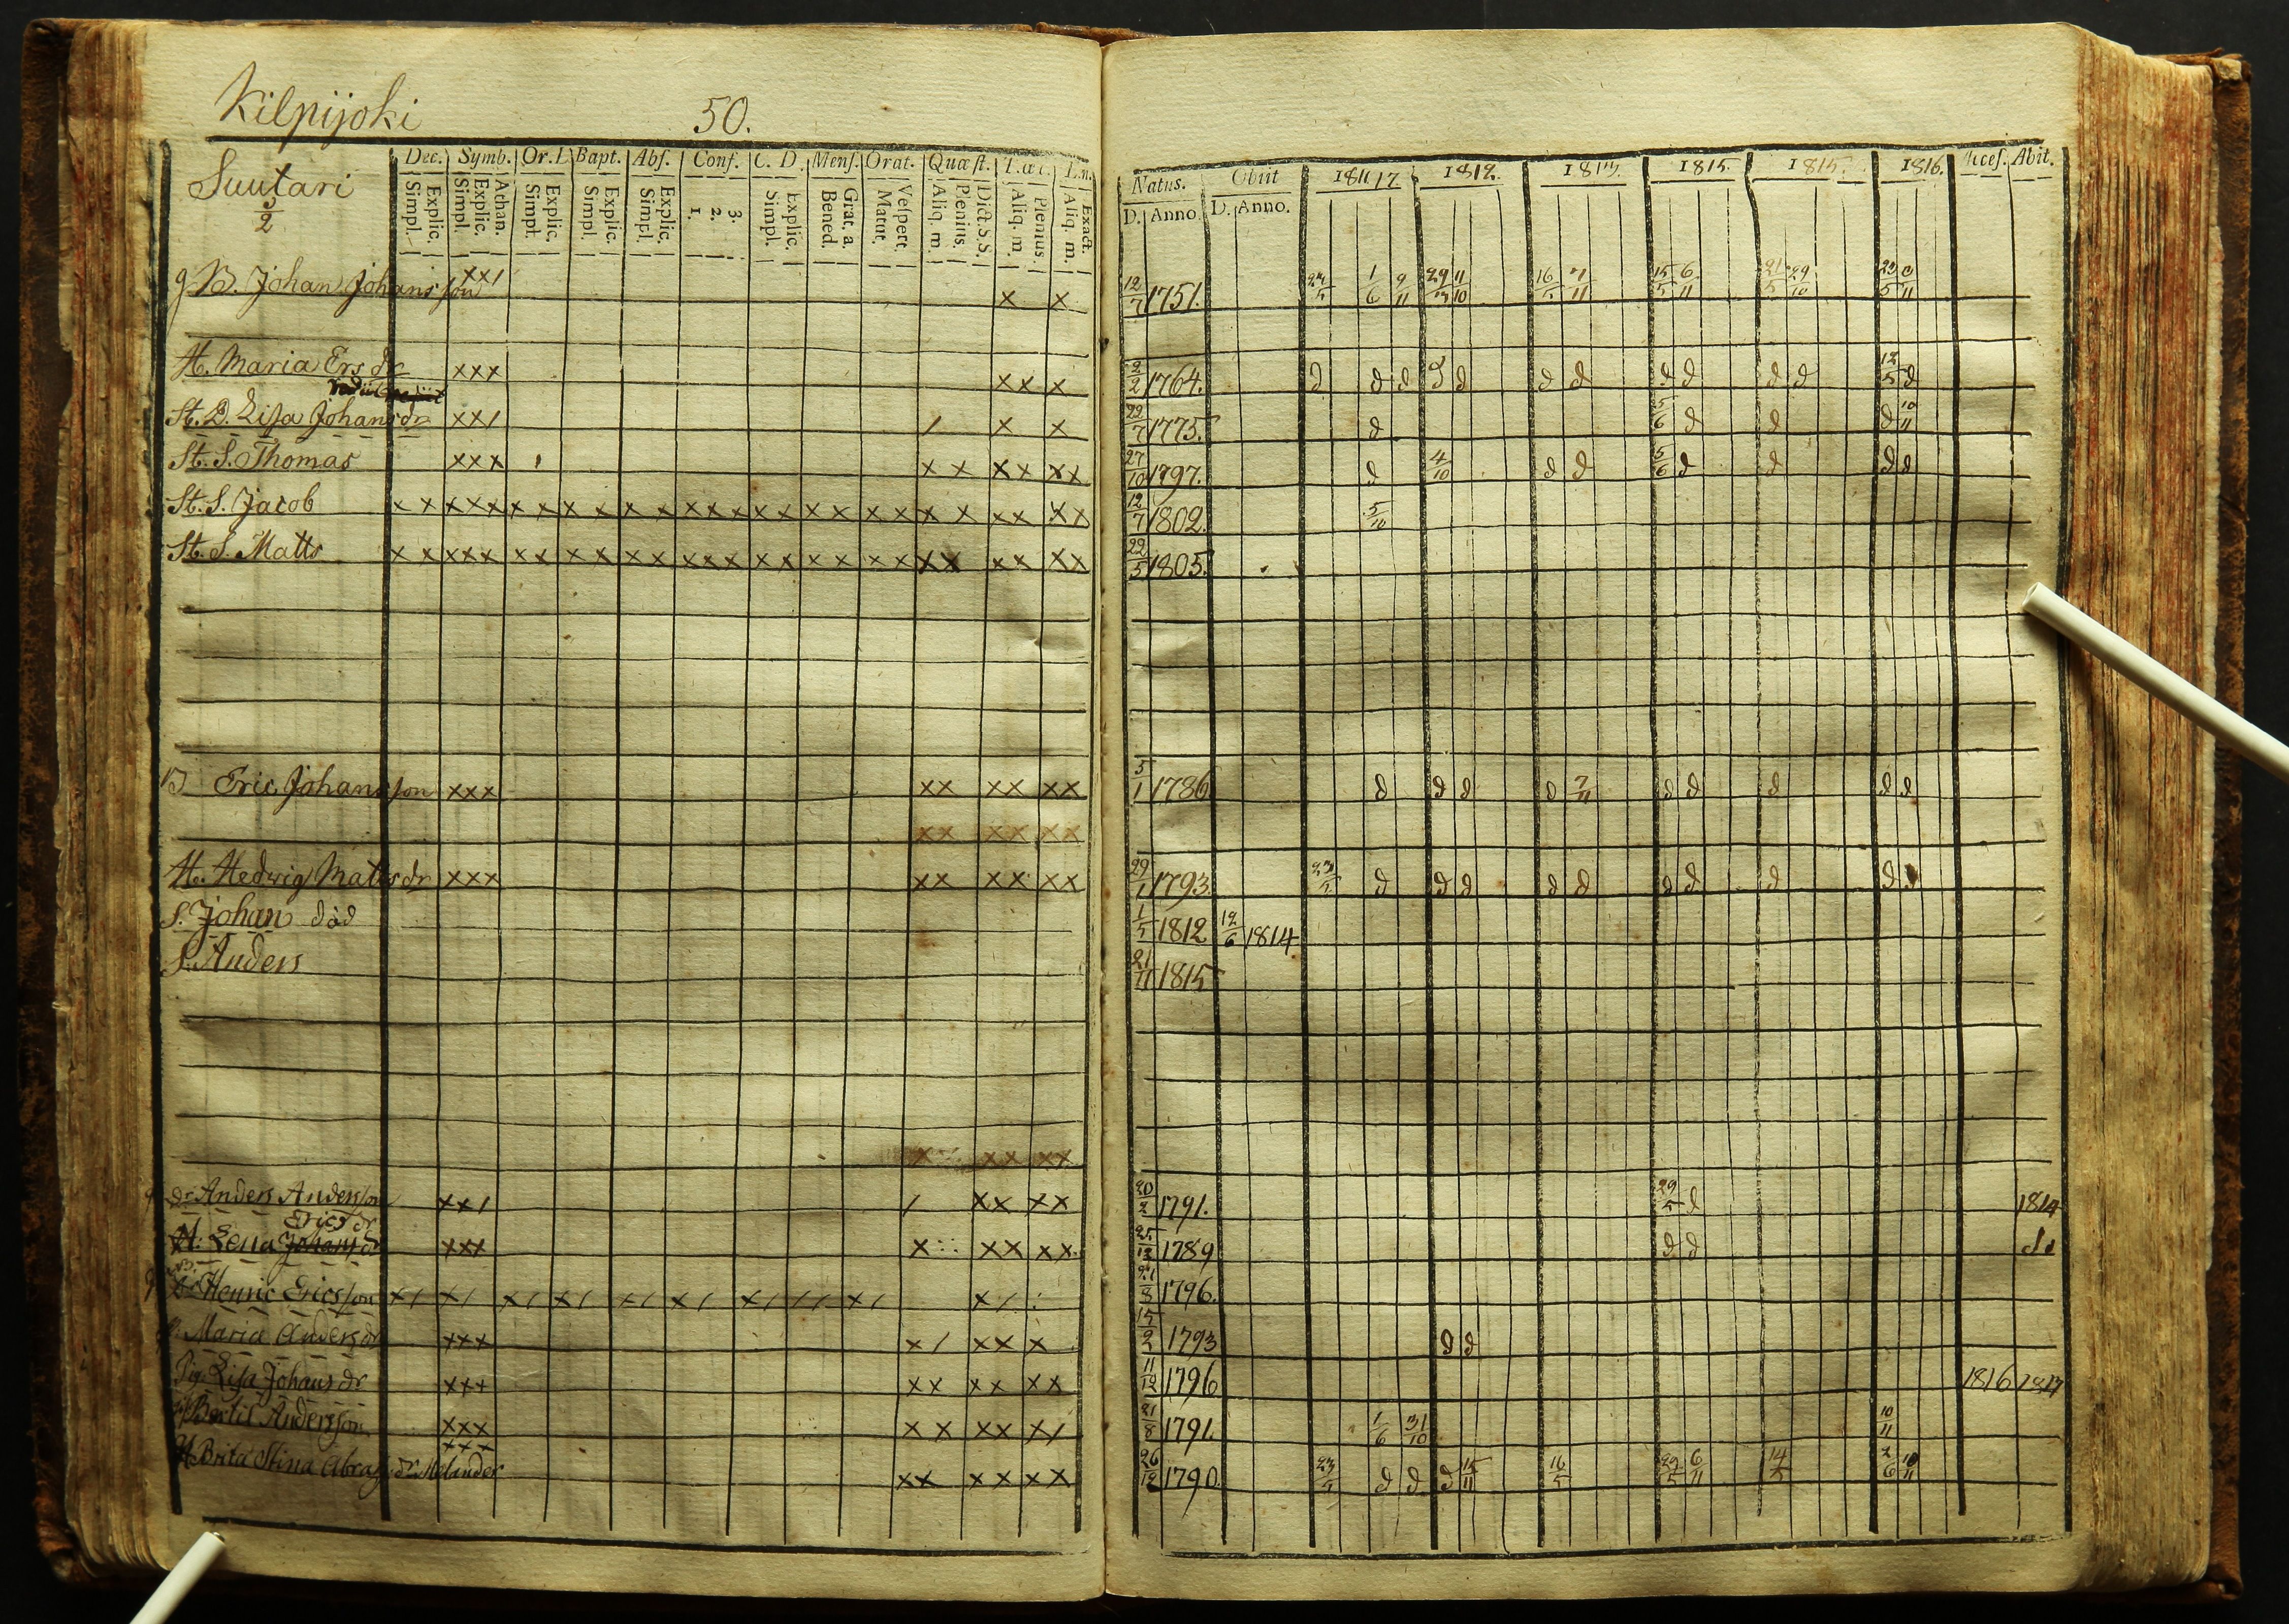 Kilpijoki 50.
Suutari
5/2
Dec. Symb. Or. D Bapt. Abs. Conf. C. D. Mens. Orat. Quæst. T.æc. L.n.
Explic. Simpl. Athan. Explic. Simpl. Explic. Simpl. Explic. Simpl. Explic. Simpl. 3. 2. 1. Explic. Simpl. Grat. a. Bened. Vespert. Matut. Dict. S.S. Plenius. Aliq. m. Plenius. Aliq. m. Exact. Aliq. m.
Natus. Obiit 1811 17. 1812. 1815. 1815. 1816. Acces. Abit.
D. Anno. D. Anno.
B. Johan Johansson xx/ x x 12/7 1751. 1/6 9/11 16/5 7/11 15/5 6/11 21/5 29/10
H. Maria Ers dr xxx xx x 2/2 1764. d d d d d d d d d d d 12/5 d
St. D. Lisa Johans dr xx/ / x x 22/7 1775. d 5/6 d d d 10/11
St. S. Thomas xxx x x xx xx 27/10 1797. d 4/10 d d 5/6 d d d d
St. S. Jacob x x xxx x x x x x x xxx xx xx xx x x xx xx 12/7 1802. 5/10
St. S. Matts x x xxx xx xx xx xxx xx xx xx xx xx xx 22/5 1805.
B Eric Johansson xxx xx xx xx 5/1 1786 d d d d 7/11 d d d d d
xx xx xx
H. Hedwig Matts dr xxx xx xx xx 29/1 1793. d d d d d d d d d
S. Johan död 1/5 1812 12/6 1814
S. Anders 21/11 1815
x xx xx
dr Anders Andersson xx/ / xx xx 20/2 1791. 29/5 d 1814
Erics dr
H: Lena Johans dr xxx x xx xx 25/12 1789 d d
Henric Ericsson x/ x/ x/ x/ x/ x/ x/ // x/ x/ 1796.
Maria Anders dr xxx x/ xx x 15/2 1793 d d
Pig. Lisa Johans dr xxx xx xx xx 11/12 1796 1816 1817
Bertil Andersson xxx x x xx x/ 21/8 1791. 1/6 31/10 10/11
H Brita Stina Abrah. dr Melander xxx xx xx xx 26/12 1790. d d d 15/11 16/5 29/5 6/11 14/5 2/6 10/11